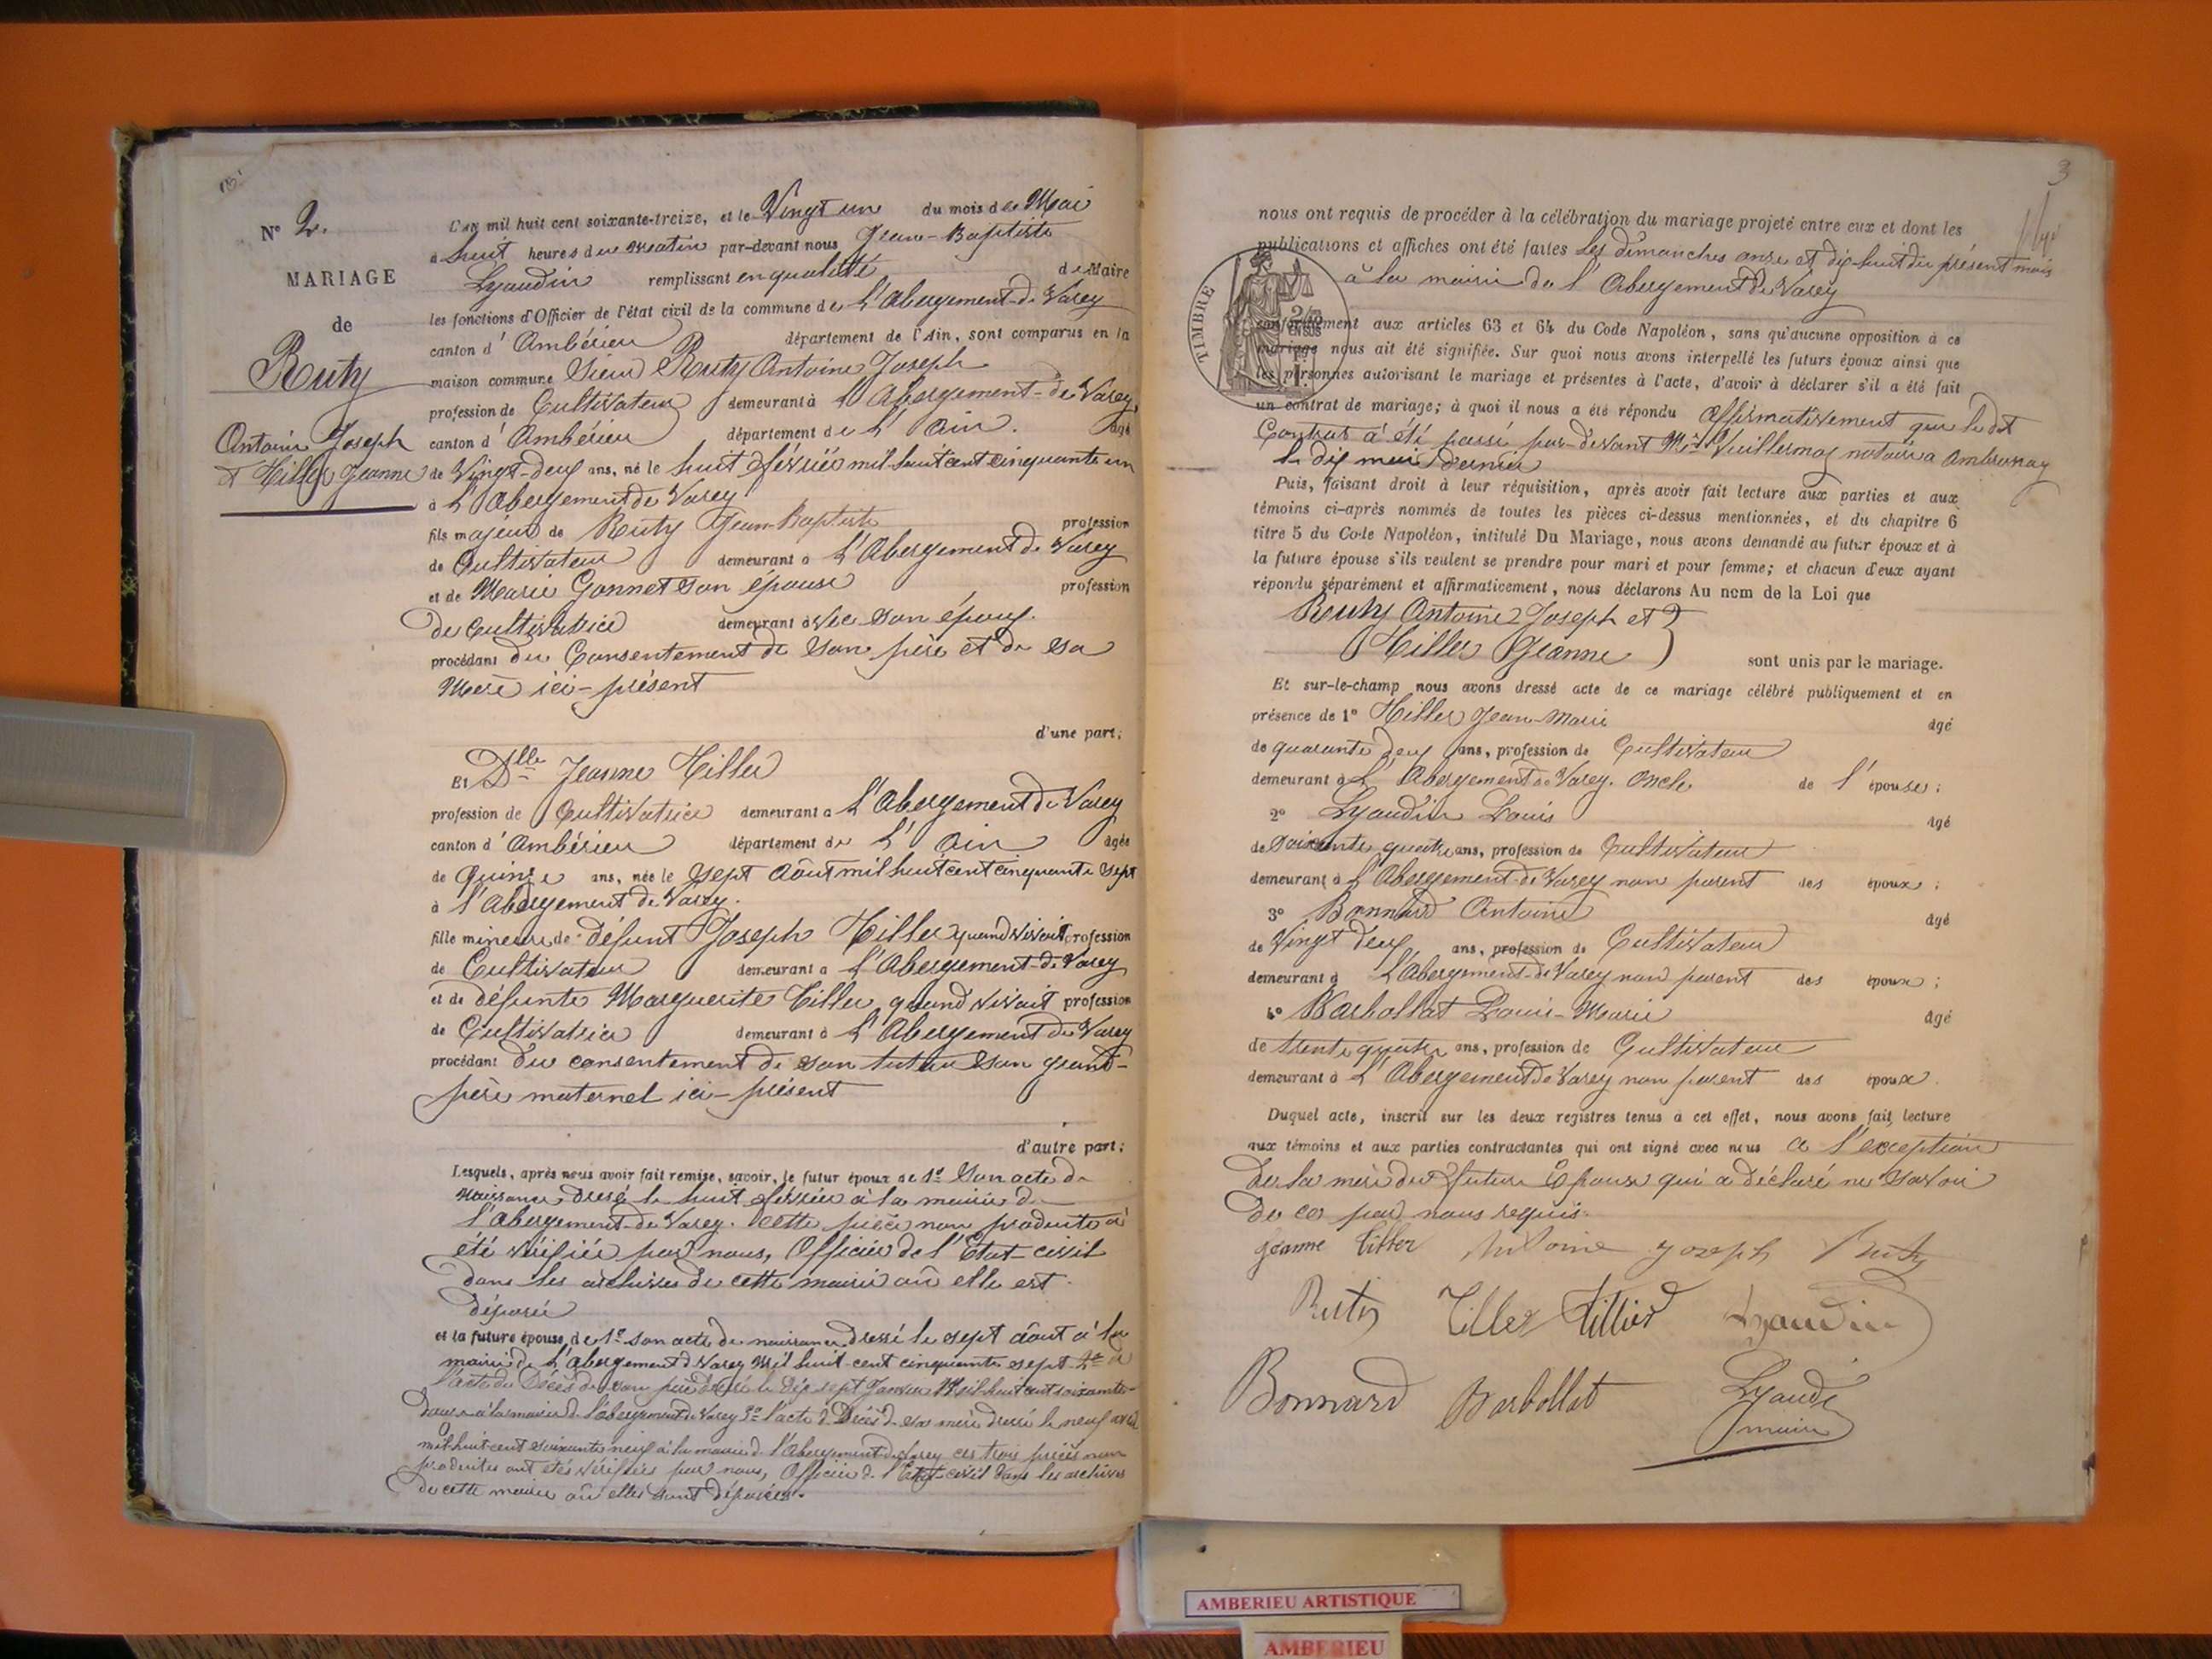 N° 2.
MARIAGE
de
Ruty
Antoine Joseph
et Tiller Jeanne
L'an mil huit cent soixante-treize, et le Vingt un du mois de Mai
à huit heures du matin par-devant nous Jean-Baptiste
Lyaudin remplissant en qualité de Maire
les fonctions d'Officier de l'état civil de la commune de L'Abergement-de Varey
canton d'Ambérieu département de l'Ain, sont comparus en la
maison commune Sieur Ruty Antoine Joseph
profession de Cultivateur demeurant à L'Abergement-de Varey,
canton d'Ambérieu département de L'Ain. âgé
de Vingt-deux ans, né le huit février mil huit cent cinquante un
à L'Abergement de Varey
fils majeur de Ruty Jean-Baptiste profession
de Cultivateur demeurant à L'Abergement de Varey
et de Marie Gonnet son épouse profession
de Cultivatrice demeurant avec son époux.
procédant du Consentement de son père et de sa
Mère ici-présent
d'une part;
Et Dlle Jeanne Tiller
profession de Cultivatrice demeurant à L'Abergement de Varey
canton d'Ambérieu département de L'Ain âgée
de Quinze ans, née le sept Août mil huit cent cinquante sept
à l'Abergement de Varey.
fille mineure de défunt Joseph Tiller quand vivait profession
de Cultivateur demeurant à L'Abergement-de Varey
et de défunte Marguerite Tiller, quand vivait profession
de Cultivatrice demeurant à L'Abergement de Varey
procédant du consentement de son tuteur son grand-
père maternel ici-présent
d'autre part;
Lesquels, après nous avoir fait remise, savoir, le futur époux de 1° Son acte de
Naissance dressé le huit février à la mairie de
l'Abergement-de Varey. Cette pièce non produite a
été vérifiée par nous, Officier de l'Etat-civil
dans les archives de cette mairie où elle est
déposée
et la future épouse, de 1° son acte de naissance dressé le sept Août à la
mairie de L'Abergement de Varey Mil huit-cent cinquante sept 2°
l'acte de Décès de son père dressé le dix sept Janvier Mil huit cent soixante-
douze à la mairie de l'abergement de Varey 3° l'acte de Décès de sa mère dressé le neuf avril
mil huit cent soixante neuf à la mairie de l'Abergement de Varey ces trois pièces non
produites ont étés vérifiées par nous, Officier de l'Etat-civil dans les archives
de cette mairie où elles sont déposées.
3
nous ont requis de procéder à la célébration du mariage projeté entre eux et dont les
publications et affiches ont été faites Les dimanches onze et dix-huit du présent mois
à la mairie de l'Abergement de Varey
TIMBRE
2/10
EN SUS
conformément aux articles 63 et 64 du Code Napoléon, sans qu'aucune opposition à ce
mariage nous ait été signifiée. Sur quoi nous avons interpellé les futurs époux ainsi que
les personnes autorisant le mariage et présentes à l'acte, d'avoir à déclarer s'il a été fait
un contrat de mariage; à quoi il nous a été répondu Affirmativement que le dit
Contrat a été passé par-devant Me Vuillermoz notaire a Ambronay
le dix mai dernier
Puis, faisant droit à leur réquisition, après avoir fait lecture aux parties et aux
témoins ci-après nommés de toutes les pièces ci-dessus mentionnées, et du chapitre 6
titre 5 du Code Napoléon, intitulé Du Mariage, nous avons demandé au futur époux et à
la future épouse s'ils veulent se prendre pour mari et pour femme; et chacun d'eux ayant
répondu séparément et affirmativement, nous déclarons Au nom de la Loi que
Ruty Antoine Joseph et
Tiller Jeanne sont unis par le mariage.
Et sur-le-champ nous avons dressé acte de ce mariage célébré publiquement et en
présence de 1° Tiller Jean-Marie âgé
de quarante deux ans, profession de Cultivateur
demeurant à L'Abergement de Varey. Oncle de l'épouse;
2° Lyaudin Louis âgé
de soixante quatre ans, profession de Cultivateur
demeurant à L'Abergement-de Varey non parent des époux;
3° Bonnard Antoine âgé
de Vingt deux ans, profession de Cultivateur
demeurant à L'Abergement-de Varey non parent des époux;
4° Barbollat Louis-Marie âgé
de trente quatre ans, profession de Cultivateur
demeurant à L'Abergement de Varey non parent des époux.
Duquel acte, inscrit sur les deux registres tenus à cet effet, nous avons fait lecture
aux témoins et aux parties contractantes qui ont signé avec nous a l'exception
De la mère du future Epouse qui a déclaré ne savoir
de ce par nous requis.
jeanne tiller Antoine joseph Ruty
Ruty Tiller Tillier Lyaudin
Bonnard Barbollat Lyaudi
maire
AMBERIEU ARTISTIQUE
AMBERIEU